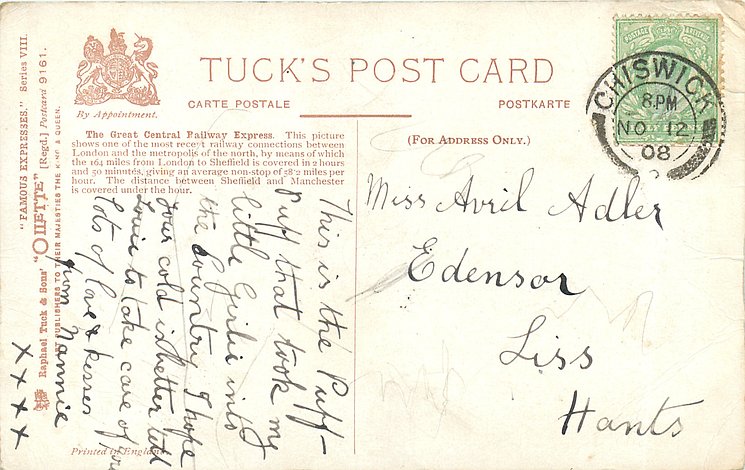 TUCK'S POST CARD
CARTE POSTALE
POSTKARTE
By Appointment.
The Great Central Railway Express. This picture
shows one of the most recent railway connections between
London and the metropolis of the north, by means of which
the 164 miles from London to Sheffield is covered in 2 hours
and 50 minutes, giving an average non-stop of 58·2 miles per
hour. The distance between Sheffield and Manchester
is covered under the hour.
(FOR ADDRESS ONLY.)
POSTAGE
CHISWICK
8.PM
NO 12
08
Miss Avril Adler
Edensor
Liss
Hants
This is the Puff
Puff that took my
little Girlie into
the Country I hope
your cold is better tell
Louie to take care of you
lots of love & kisses
from Nannie
x x x x
"FAMOUS EXPRESSES." Series VIII.
Raphael Tuck & Sons' "OILETTE" [Regd.] Postcard 9161.
ART PUBLISHERS TO THEIR MAJESTIES THE KING & QUEEN.
Printed in England.